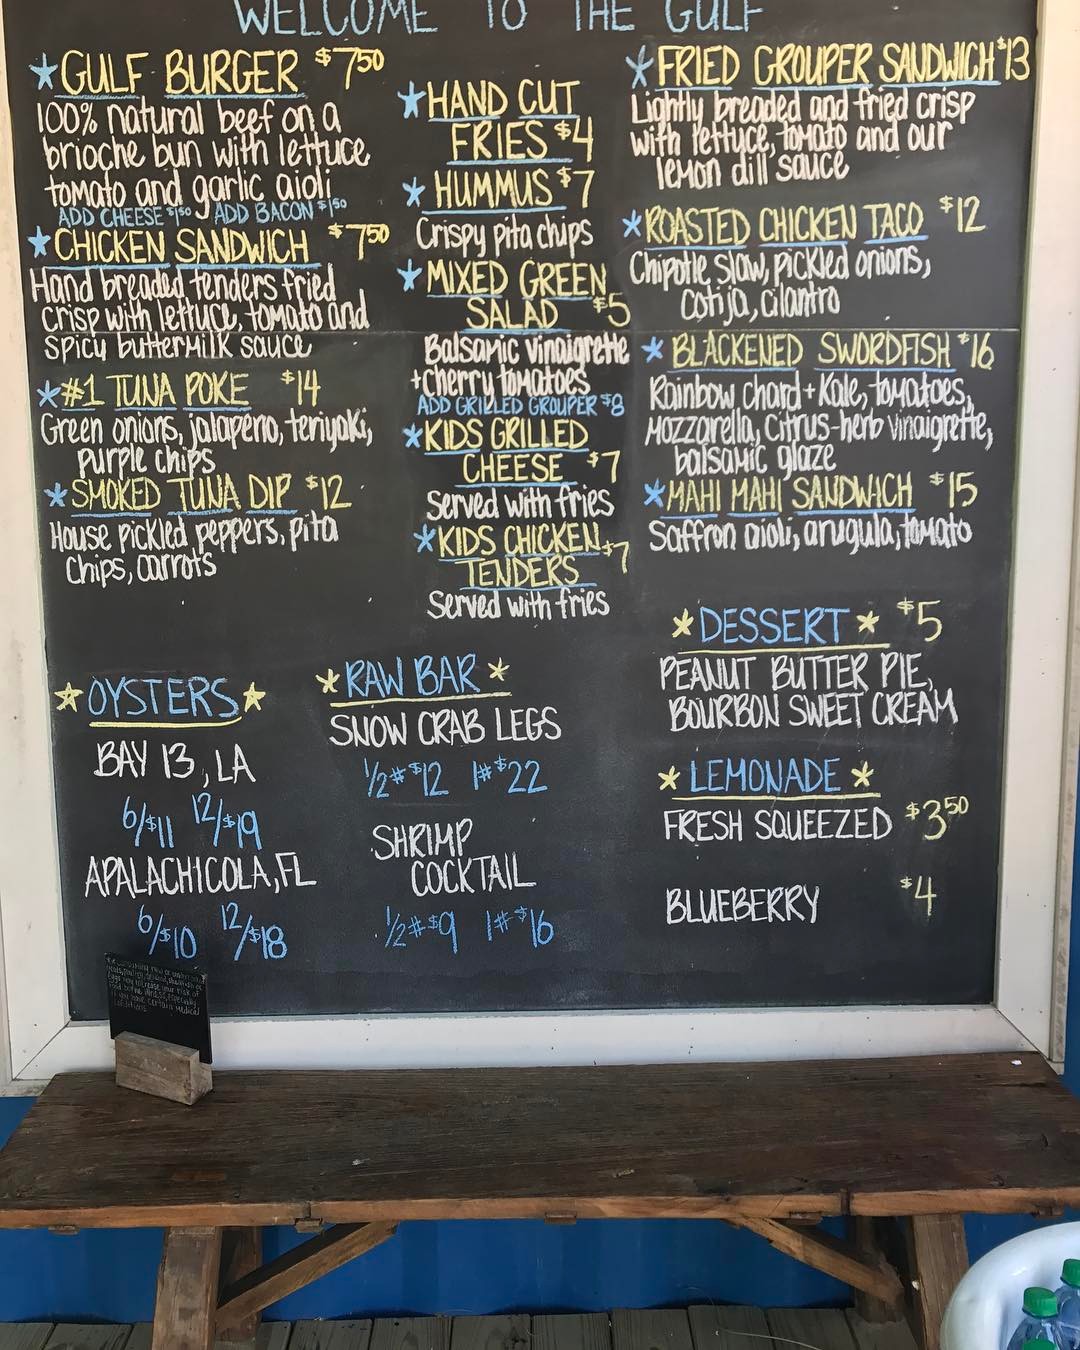 WELCOME TO THE GULF
GULF BURGER $7.50
100% natural beef on a
brioche bun with lettuce
tomato and garlic aioli
ADD CHEESE $1.50 ADD BACON $1.50
CHICKEN SANDWICH $7.50
Hand breaded tenders fried
crisp with lettuce, tomato and
spicy buttermilk sauce
#1 TUNA POKE $14
Green onions, jalapeno, teriyaki,
purple chips
SMOKED TUNA DIP $12
House pickled peppers, pita
chips, carrots
HAND CUT
FRIES $4
HUMMUS $7
Crispy pita chips
MIXED GREEN
SALAD $5
Balsamic vinaigrette
+cherry tomatoes
ADD GRILLED GROUPER $8
KIDS GRILLED
CHEESE $7
Served with fries
KIDS CHICKEN
TENDERS $7
Served with fries
FRIED GROUPER SANDWICH $13
Lightly breaded and fried crisp
with lettuce, tomato and our
lemon dill sauce
ROASTED CHICKEN TACO $12
Chipotle slaw, pickled onions,
Cotija, cilantro
BLACKENED SWORDFISH $16
Rainbow chard + Kale, tomatoes,
Mozzarella, Citrus-herb vinaigrette,
balsamic glaze
MAHI MAHI SANDWICH $15
Saffron aioli, arugula, tomato
OYSTERS
BAY 13, LA
6/$11 12/$19
APALACHICOLA, FL
6/$10 12/$18
RAW BAR
SNOW CRAB LEGS
1/2# $12 1# $22
SHRIMP
COCKTAIL
1/2# $9 1# $16
DESSERT $5
PEANUT BUTTER PIE,
BOURBON SWEET CREAM
LEMONADE
FRESH SQUEEZED $3.50
BLUEBERRY $4
consuming raw or
your risk of
especially
if you have certain medical
conditions